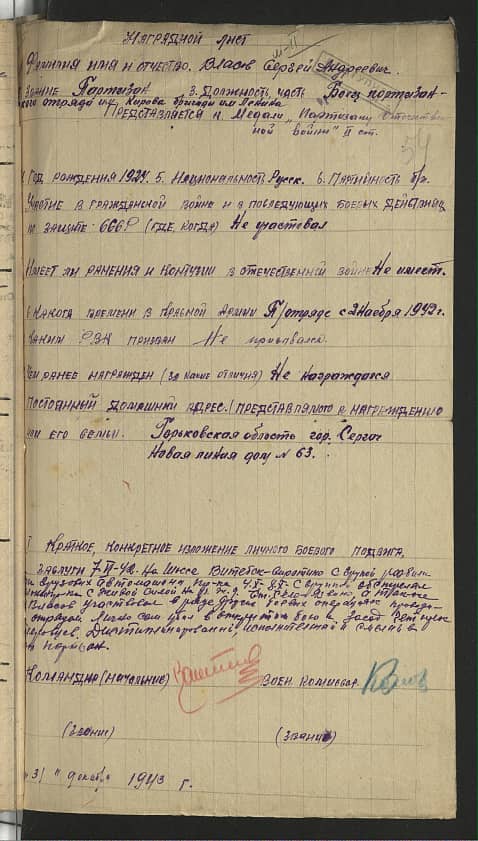 НАГРАДНОЙ ЛИСТ
Фамилия имя и отчество. Власов Сергей Андреевич.
Звание Партизан 3. Должность часть Боец партизан-
ского отряда им. Кирова бригады им Ленина
Представляется к Медали „Партизану Отечествен-
ной войны" II ст.
54
Год рождения 1924. 5. Национальность Русск. 6. Партийность б/п.
Участие в гражданской войне и в последующих боевых действиях
по защите СССР (где, когда) Не участвовал
Имеет ли ранения и контузии в отечественной войне Не имеет.
С какого времени в Красной Армии П/отряде с 2 Ноября 1942 г.
Каким РВК призван Не призывался
Чем ранее награжден (за какие отличия) Не награждался
Постоянный домашний адрес (представляемого к награждению
или его семьи. Горьковская область гор. Сергач
Новая линия дом № 63.
I Краткое, конкретное изложение личного боевого подвига,
заслуги 7-XI-42. На шоссе Витебск-Сиротино с группой
грузовых автомашин,
с живой силой на
Власов участвовал в ряде других боевых операциях
отрядом. Лично сам убил в открытом бою и засад
Дисциплинированный, исполнительный смелый в
Командир (начальник) Воен. Комиссар.
(Звание) (звание)
„31" декабря 1943 г.